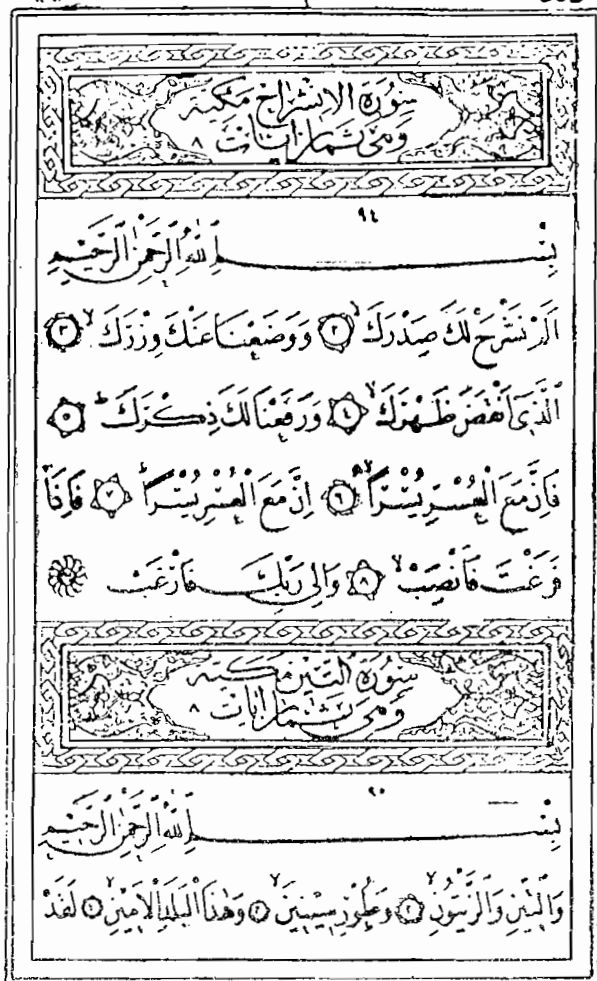 سُورَةُ الْاِنْشِرَاحِ مَكِّيَّةٌ
وَهِيَ ثَمَانِ اٰيَاتٍ ٨
٩٤
بِسْمِ اللّٰهِ الرَّحْمٰنِ الرَّحِيمِ
اَلَمْ نَشْرَحْ لَكَ صَدْرَكَ ﴿٢﴾ وَوَضَعْنَا عَنْكَ وِزْرَكَ ﴿٣﴾
اَلَّذِى اَنْقَضَ ظَهْرَكَ ﴿٤﴾ وَرَفَعْنَا لَكَ ذِكْرَكَ ﴿٥﴾
فَاِنَّ مَعَ الْعُسْرِ يُسْرًا ﴿٦﴾ اِنَّ مَعَ الْعُسْرِ يُسْرًا ﴿٧﴾ فَاِذَا
فَرَغْتَ فَانْصَبْ ﴿٨﴾ وَاِلٰى رَبِّكَ فَارْغَبْ
سُورَةُ التِّينِ مَكِّيَّةٌ
وَهِيَ ثَمَانِ اٰيَاتٍ ٨
٩٥
بِسْمِ اللّٰهِ الرَّحْمٰنِ الرَّحِيمِ
وَالتِّينِ وَالزَّيْتُونِ ﴿٢﴾ وَطُورِ سِينِينَ ﴿٣﴾ وَهٰذَا الْبَلَدِ الْاَمِينِ ﴿٤﴾ لَقَدْ